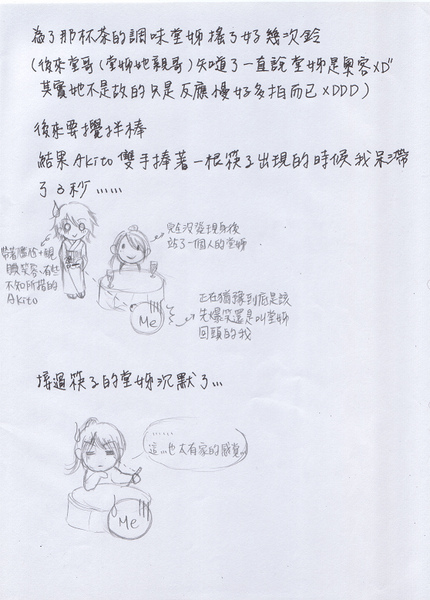 為了那杯茶的調味堂姊搖了好幾次鈴
(後來堂哥(堂姊她親哥)知道了一直說堂姊是奧客XD"
其實她不是故的只是反應慢好多拍而已XDDD)
後來要攪拌棒
結果Akito雙手捧著一根筷子出現的時候我呆滯
了3秒……
完全沒發現身後
站了一個人的堂姊
帶著尷尬+靦
腆笑容、有些
不知所措的
Akito
正在猶豫到底是該
先爆笑還是叫堂姊
回頭的我
Me
接過筷子的堂姊沉默了…
……
這…也太有家的感覺…
Me